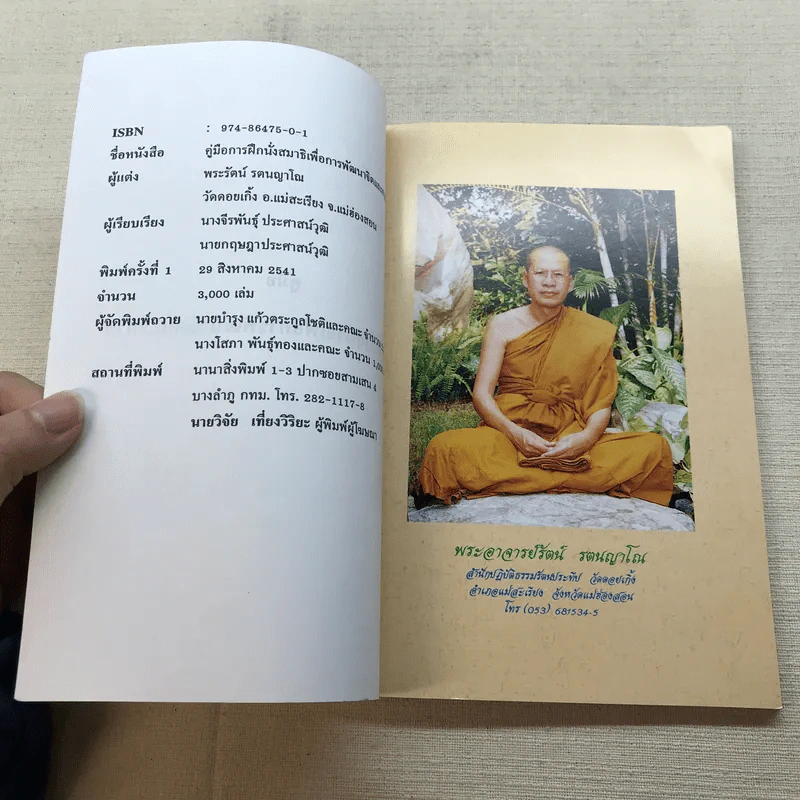 ISBN : 974-86475-0-1
ชื่อหนังสือ คู่มือการฝึกนั่งสมาธิเพื่อการพัฒนาจิต
ผู้แต่ง พระรัตน์ รตนญาโณ
วัดดอยเกิ้ง อ.แม่สะเรียง จ.แม่ฮ่องสอน
ผู้เรียบเรียง นางจีรพันธุ์ ประศาสน์วุฒิ
นายกฤษฎาประศาสน์วุฒิ
พิมพ์ครั้งที่ 1 29 สิงหาคม 2541
จำนวน 3,000 เล่ม
ผู้จัดพิมพ์ถวาย นายบำรุง แก้วตระกูลโชติและคณะ จำนวน
นางโสภา พันธุ์ทองและคณะ จำนวน
สถานที่พิมพ์ นานาสิ่งพิมพ์ 1-3 ปากซอยสามเสน 4
บางลำภู กทม. โทร. 282-1117-8
นายวิจัย เที่ยงวิริยะ ผู้พิมพ์ผู้โฆษณา
พระอาจารย์รัตน์ รตนญาโณ
สำนักปฏิบัติธรรมรัตนประทีป วัดดอยเกิ้ง
อำเภอแม่สะเรียง จังหวัดแม่ฮ่องสอน
โทร (053) 681534-5